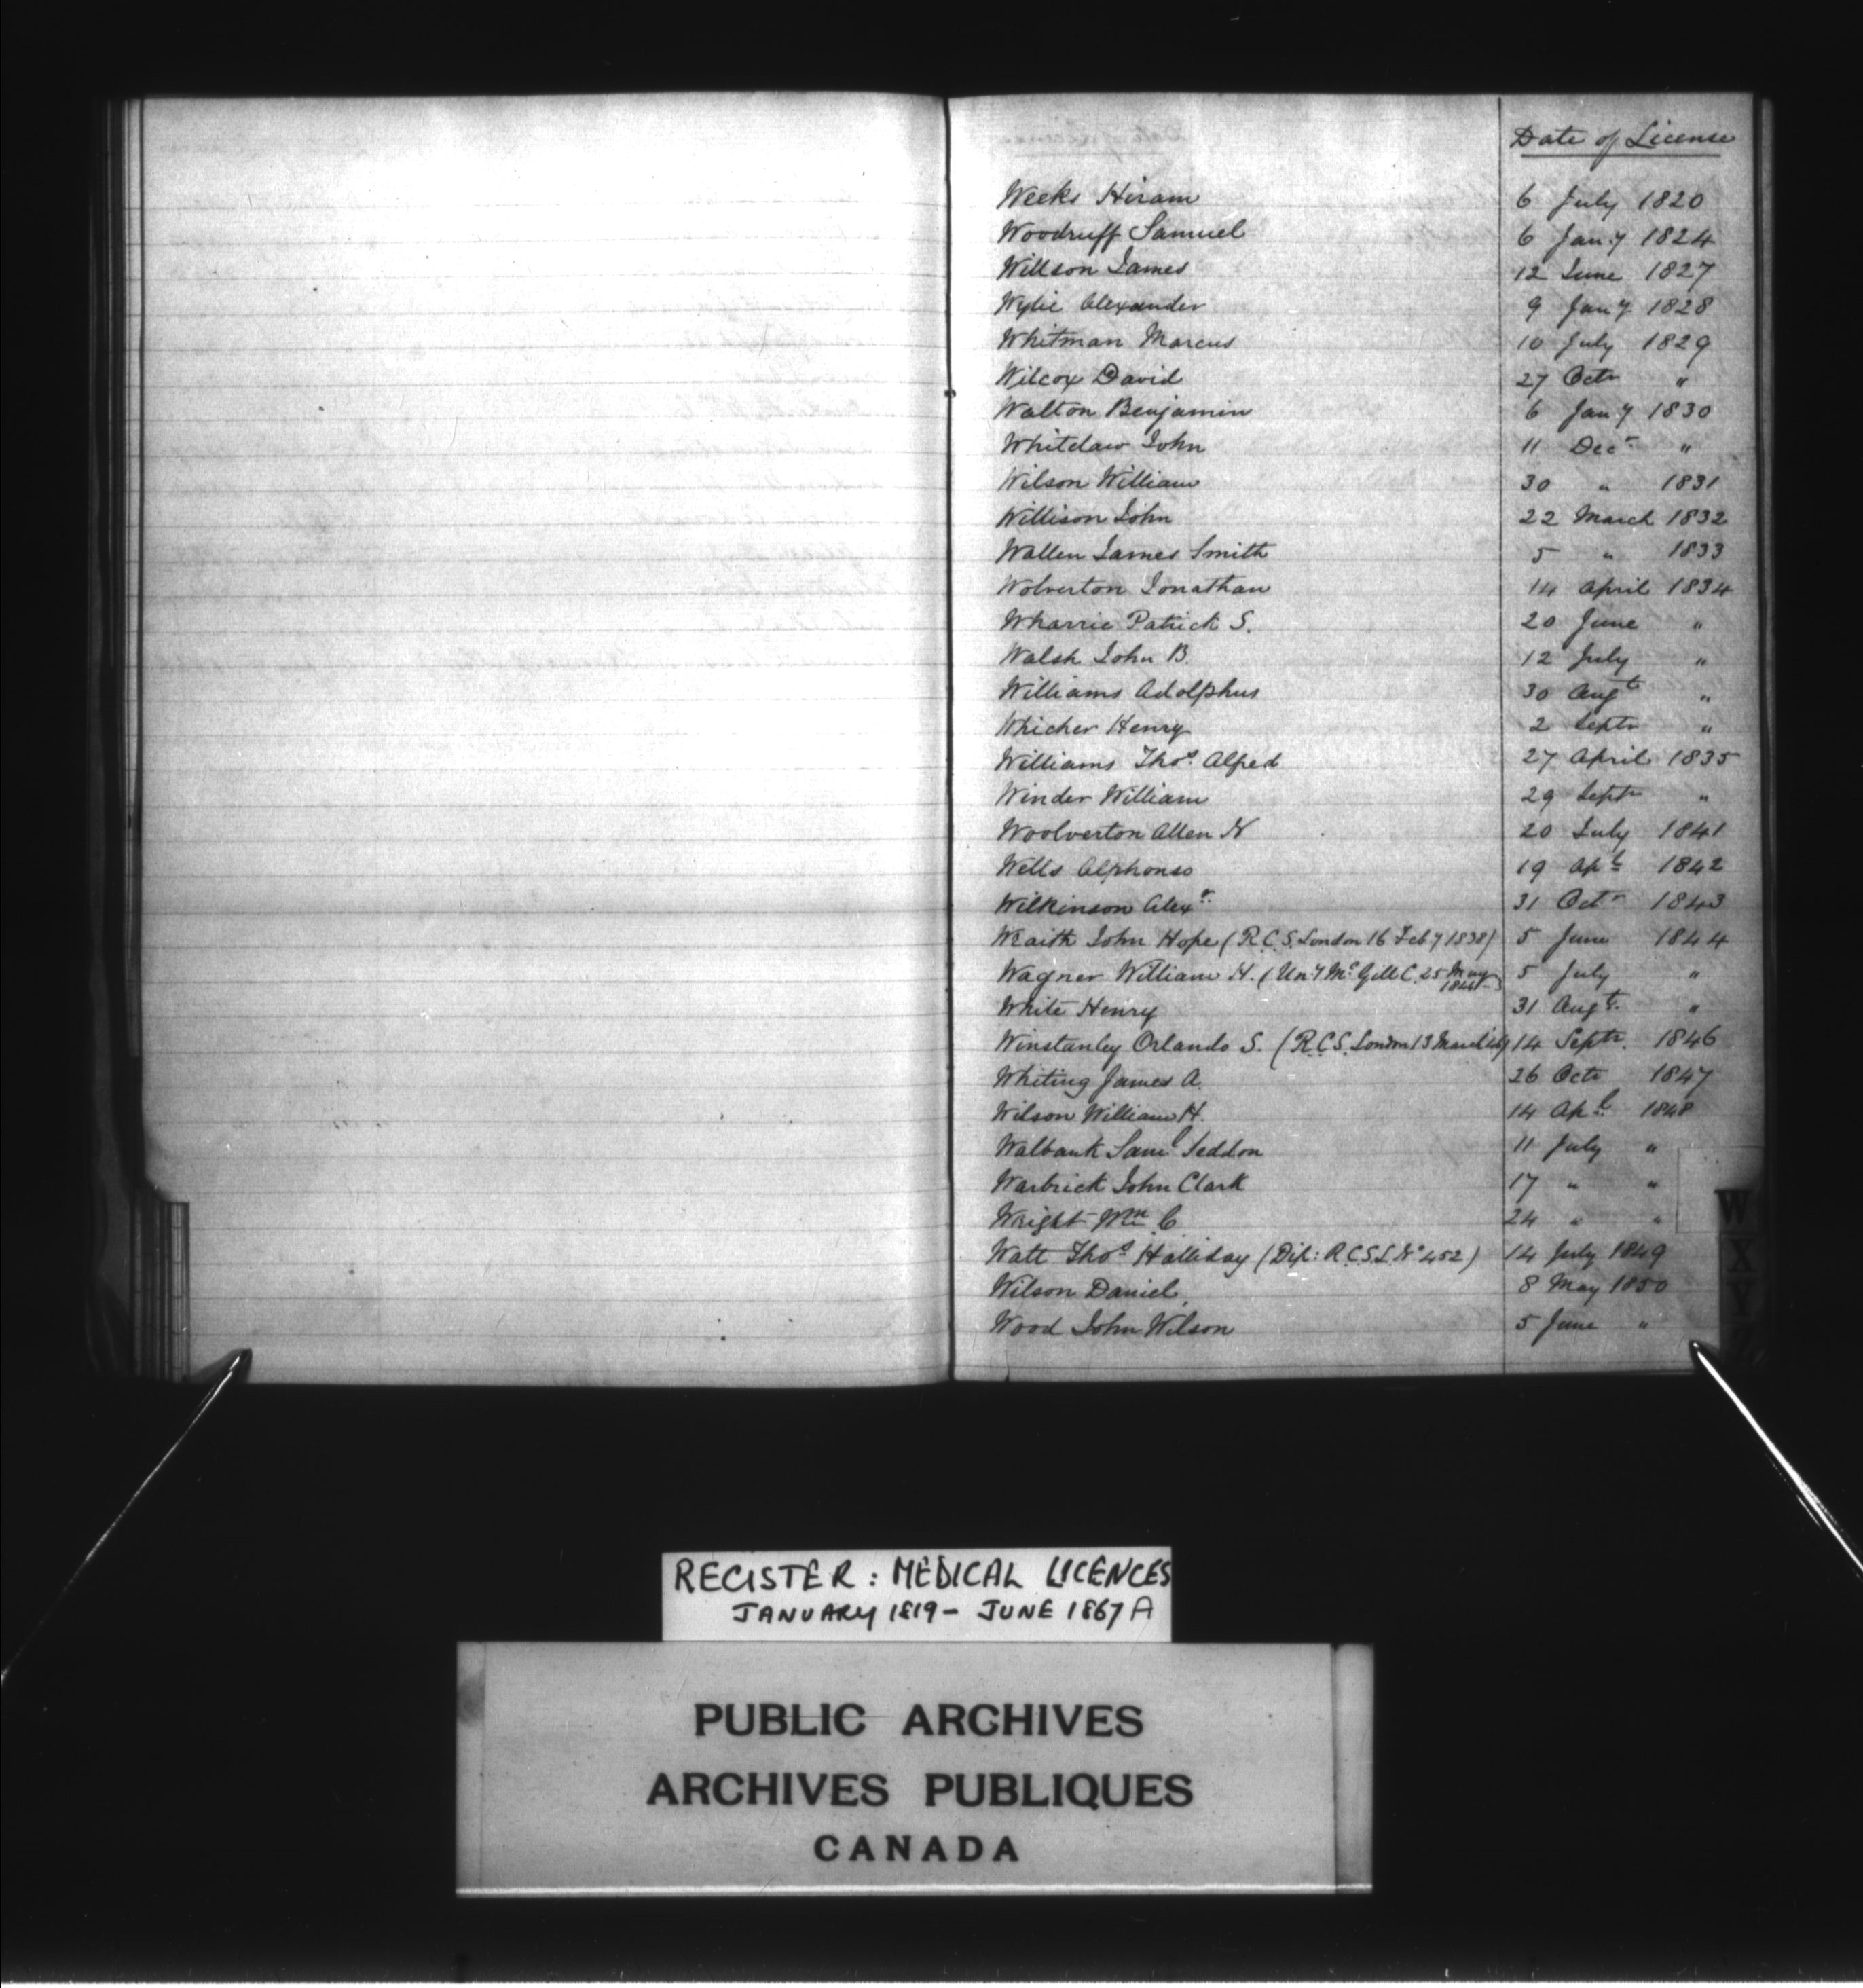 Date of License
Weeks Hiram 6 July 1820
Woodruff Samuel 6 Jany 1824
Willson James 12 June 1827
Wylie Alexander 9 Jany 1828
Whitman Marcus 10 July 1829
Wilcox David 27 Octr "
Walton Benjamin 6 Jany 1830
Whitelaw John 11 Decr "
Wilson William 30 " 1831
Willison John 22 March 1832
Wallen James Smith 5 " 1833
Wolverton Jonathan 14 April 1834
Wharrie Patrick S. 20 June "
Walsh John B. 12 July "
Williams Adolphus 30 Augt "
Whicher Henry 2 Septr "
Williams Thos. Alfred 27 April 1835
Winder William 29 Septr "
Woolverton Allen N 20 July 1841
Wells Alphonso 19 Apl 1842
Wilkinson Alexr. 31 Octr 1843
Wraith John Hope (R.C.S. London 16 Feby 1838) 5 June 1844
Wagner William H. (Uny McGill C. 25 May 5 July "
White Henry 31 Augt. "
Winstanley Orlando S. (R.C.S. London 13 March 14 Septr. 1846
Whiting James A. 26 Octr 1847
Wilson William H. 14 Apl. 1848
Walbank Saml Seddon 11 July "
Warbrick John Clark 17 " "
Wright Wm C 24 " "
Watt Thos Halliday (Dip: R.C.S.L. No 452) 14 July 1849
Wilson Daniel 8 May 1850
Wood John Wilson 5 June "
W
X
Y
Z
REGISTER: MEDICAL LICENCES
JANUARY 1819 - JUNE 1867 A
PUBLIC ARCHIVES
ARCHIVES PUBLIQUES
CANADA